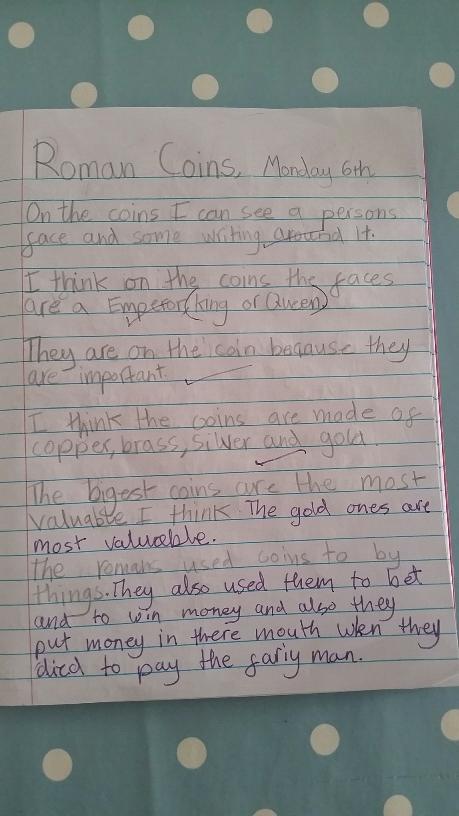 Roman Coins, Monday 6th
On the coins I can see a persons
face and some writing around it.
I think on the coins the faces
are a Emperor (king or Queen)
They are on the coin beqause they
are important.
I think the coins are made of
copper, brass, silver and gold.
The bigest coins are the most
valuable I think. The gold ones are
most valuable.
The romans used coins to by
things. They also used them to bet
and to win money and also they
put money in there mouth when they
died to pay the fariy man.